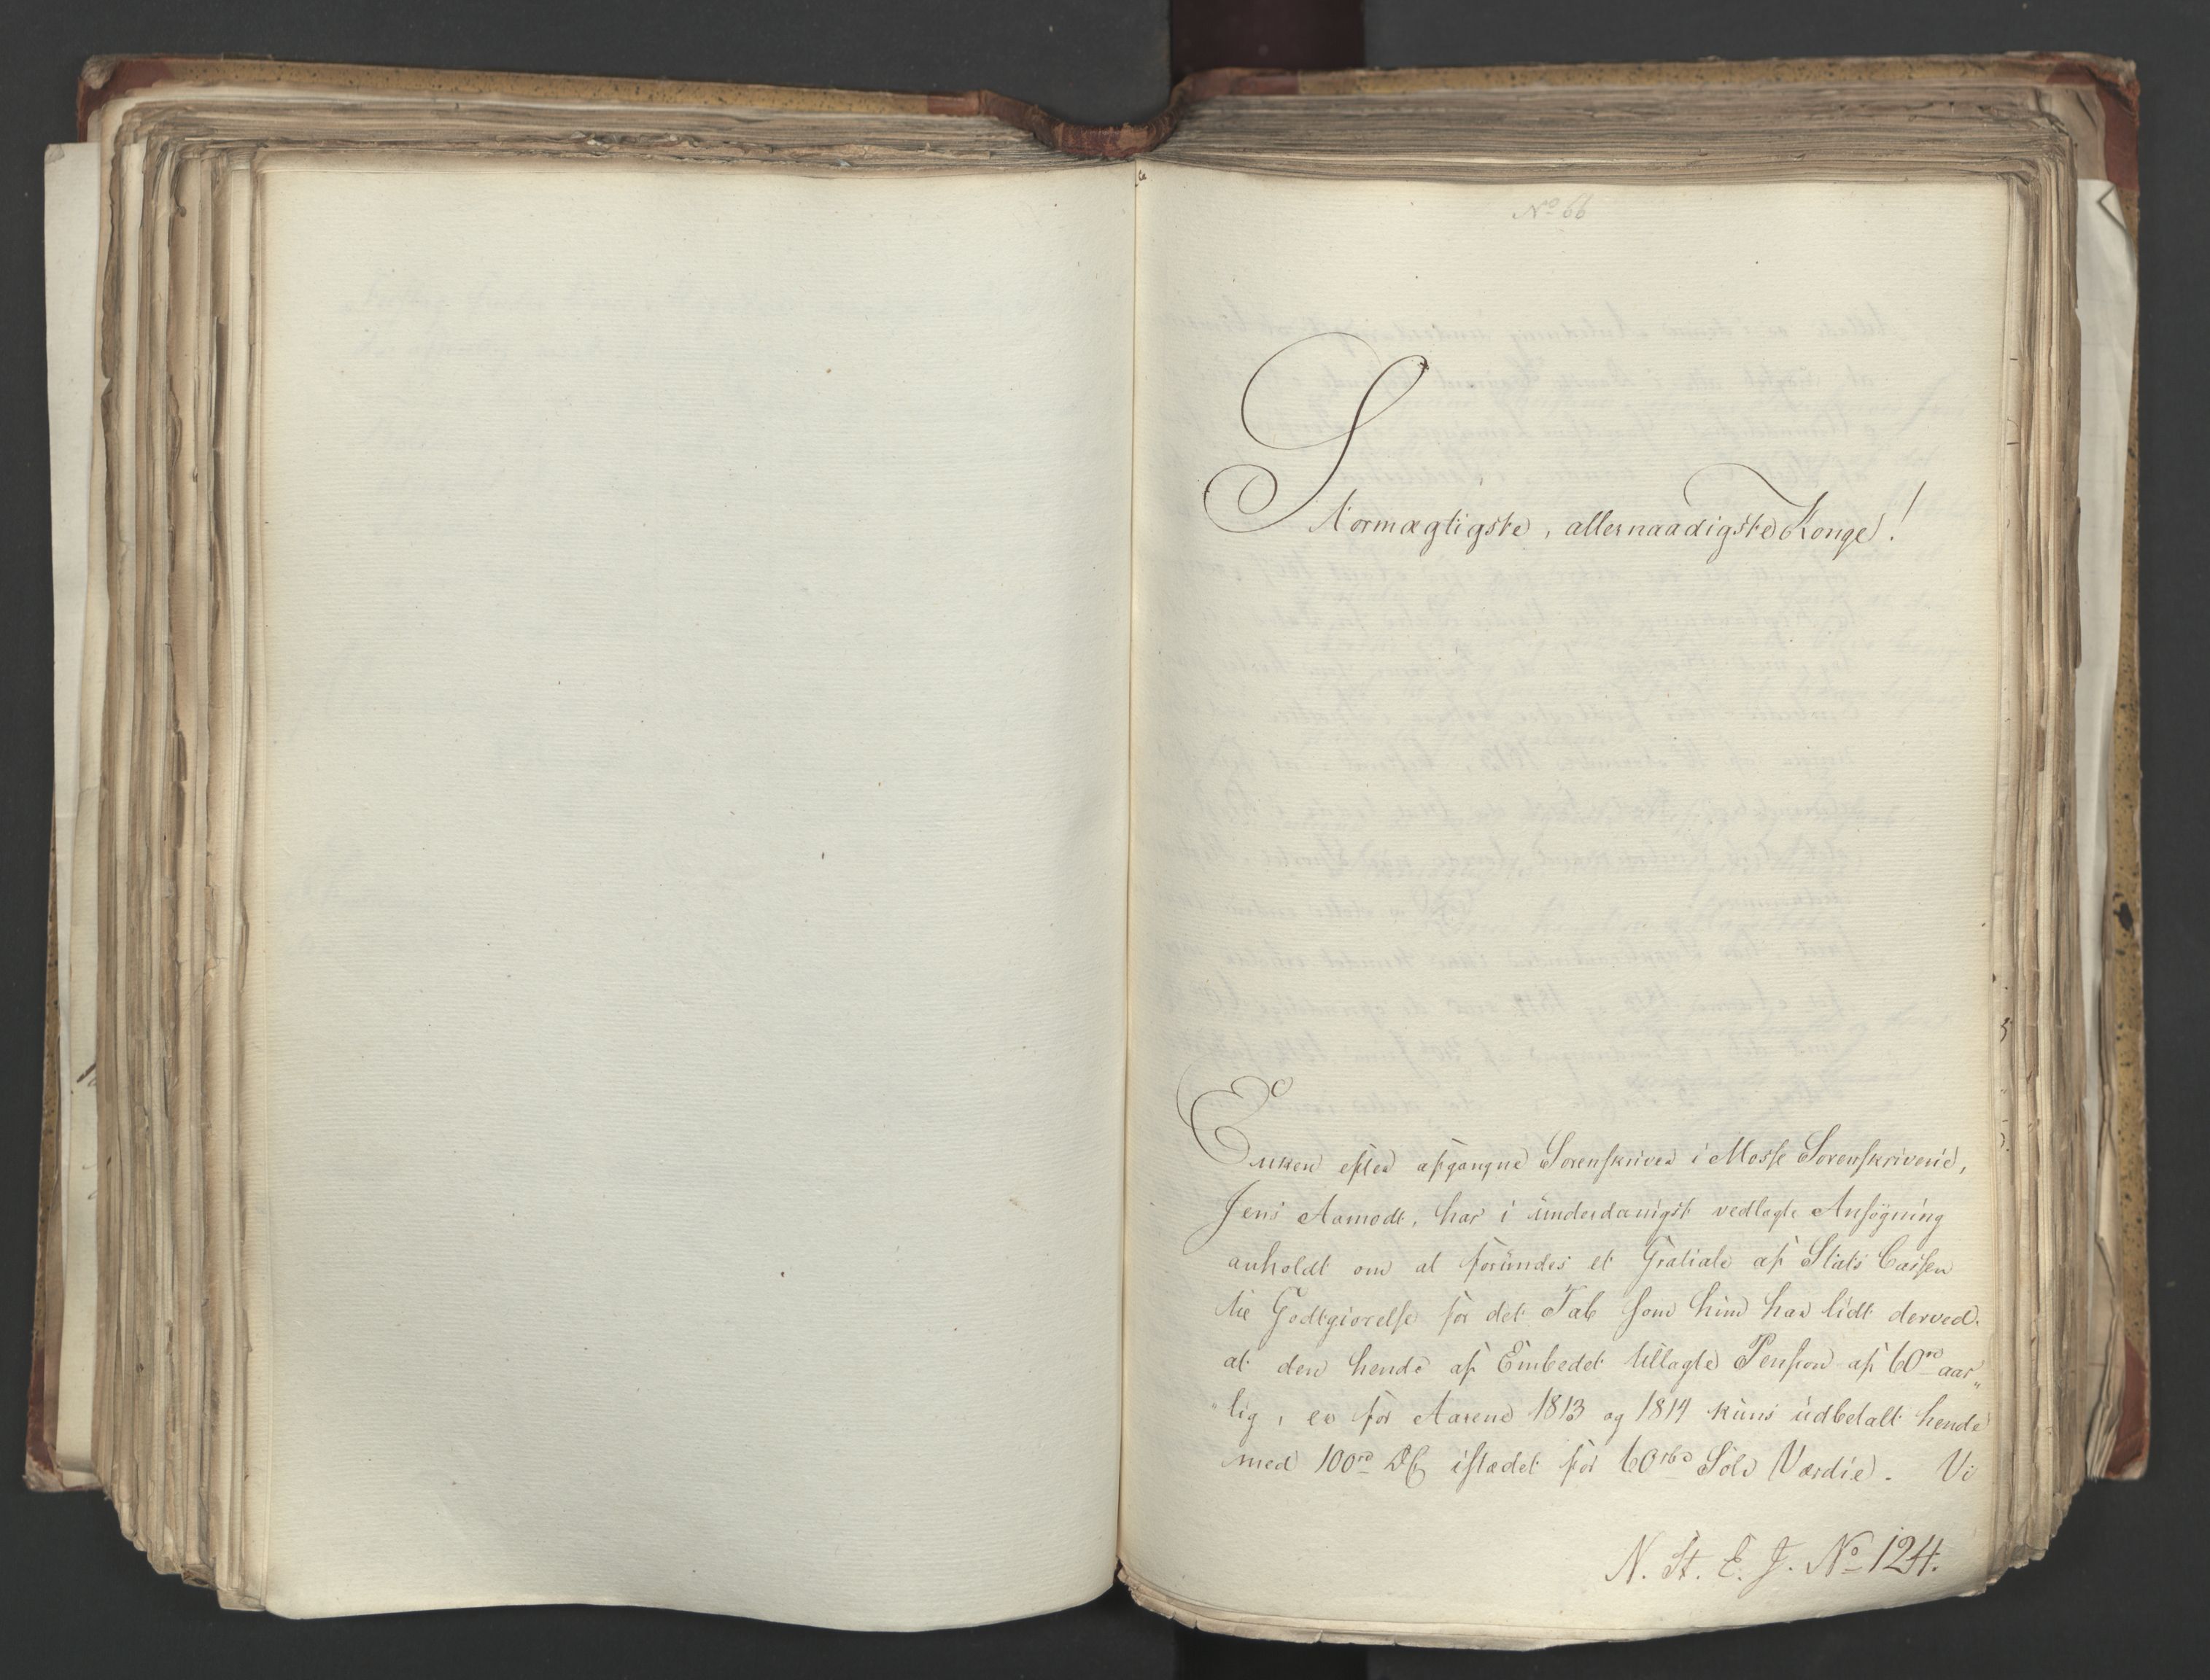 No 66
Stormægtigste, allernaadigste Konge!
Enken efter afgangne Sorenskriver i Mosse Sorenskriverie,
Jens Aamodt, har i underdanigst vedlagte Ansögning
anholdt om at forundes et Gratiale af Stats Cassen
til Godtgiørelse for det Tab som hun har lidt derved
at den hende af Embedet tillagte Pension af 60rd aar„
„lig, er for Aarene 1813 og 1814 kuns udbetalt hende
med 100rd istædet for 60rbd Sölv Værdie. Vi
N. St. E. J. No 124.